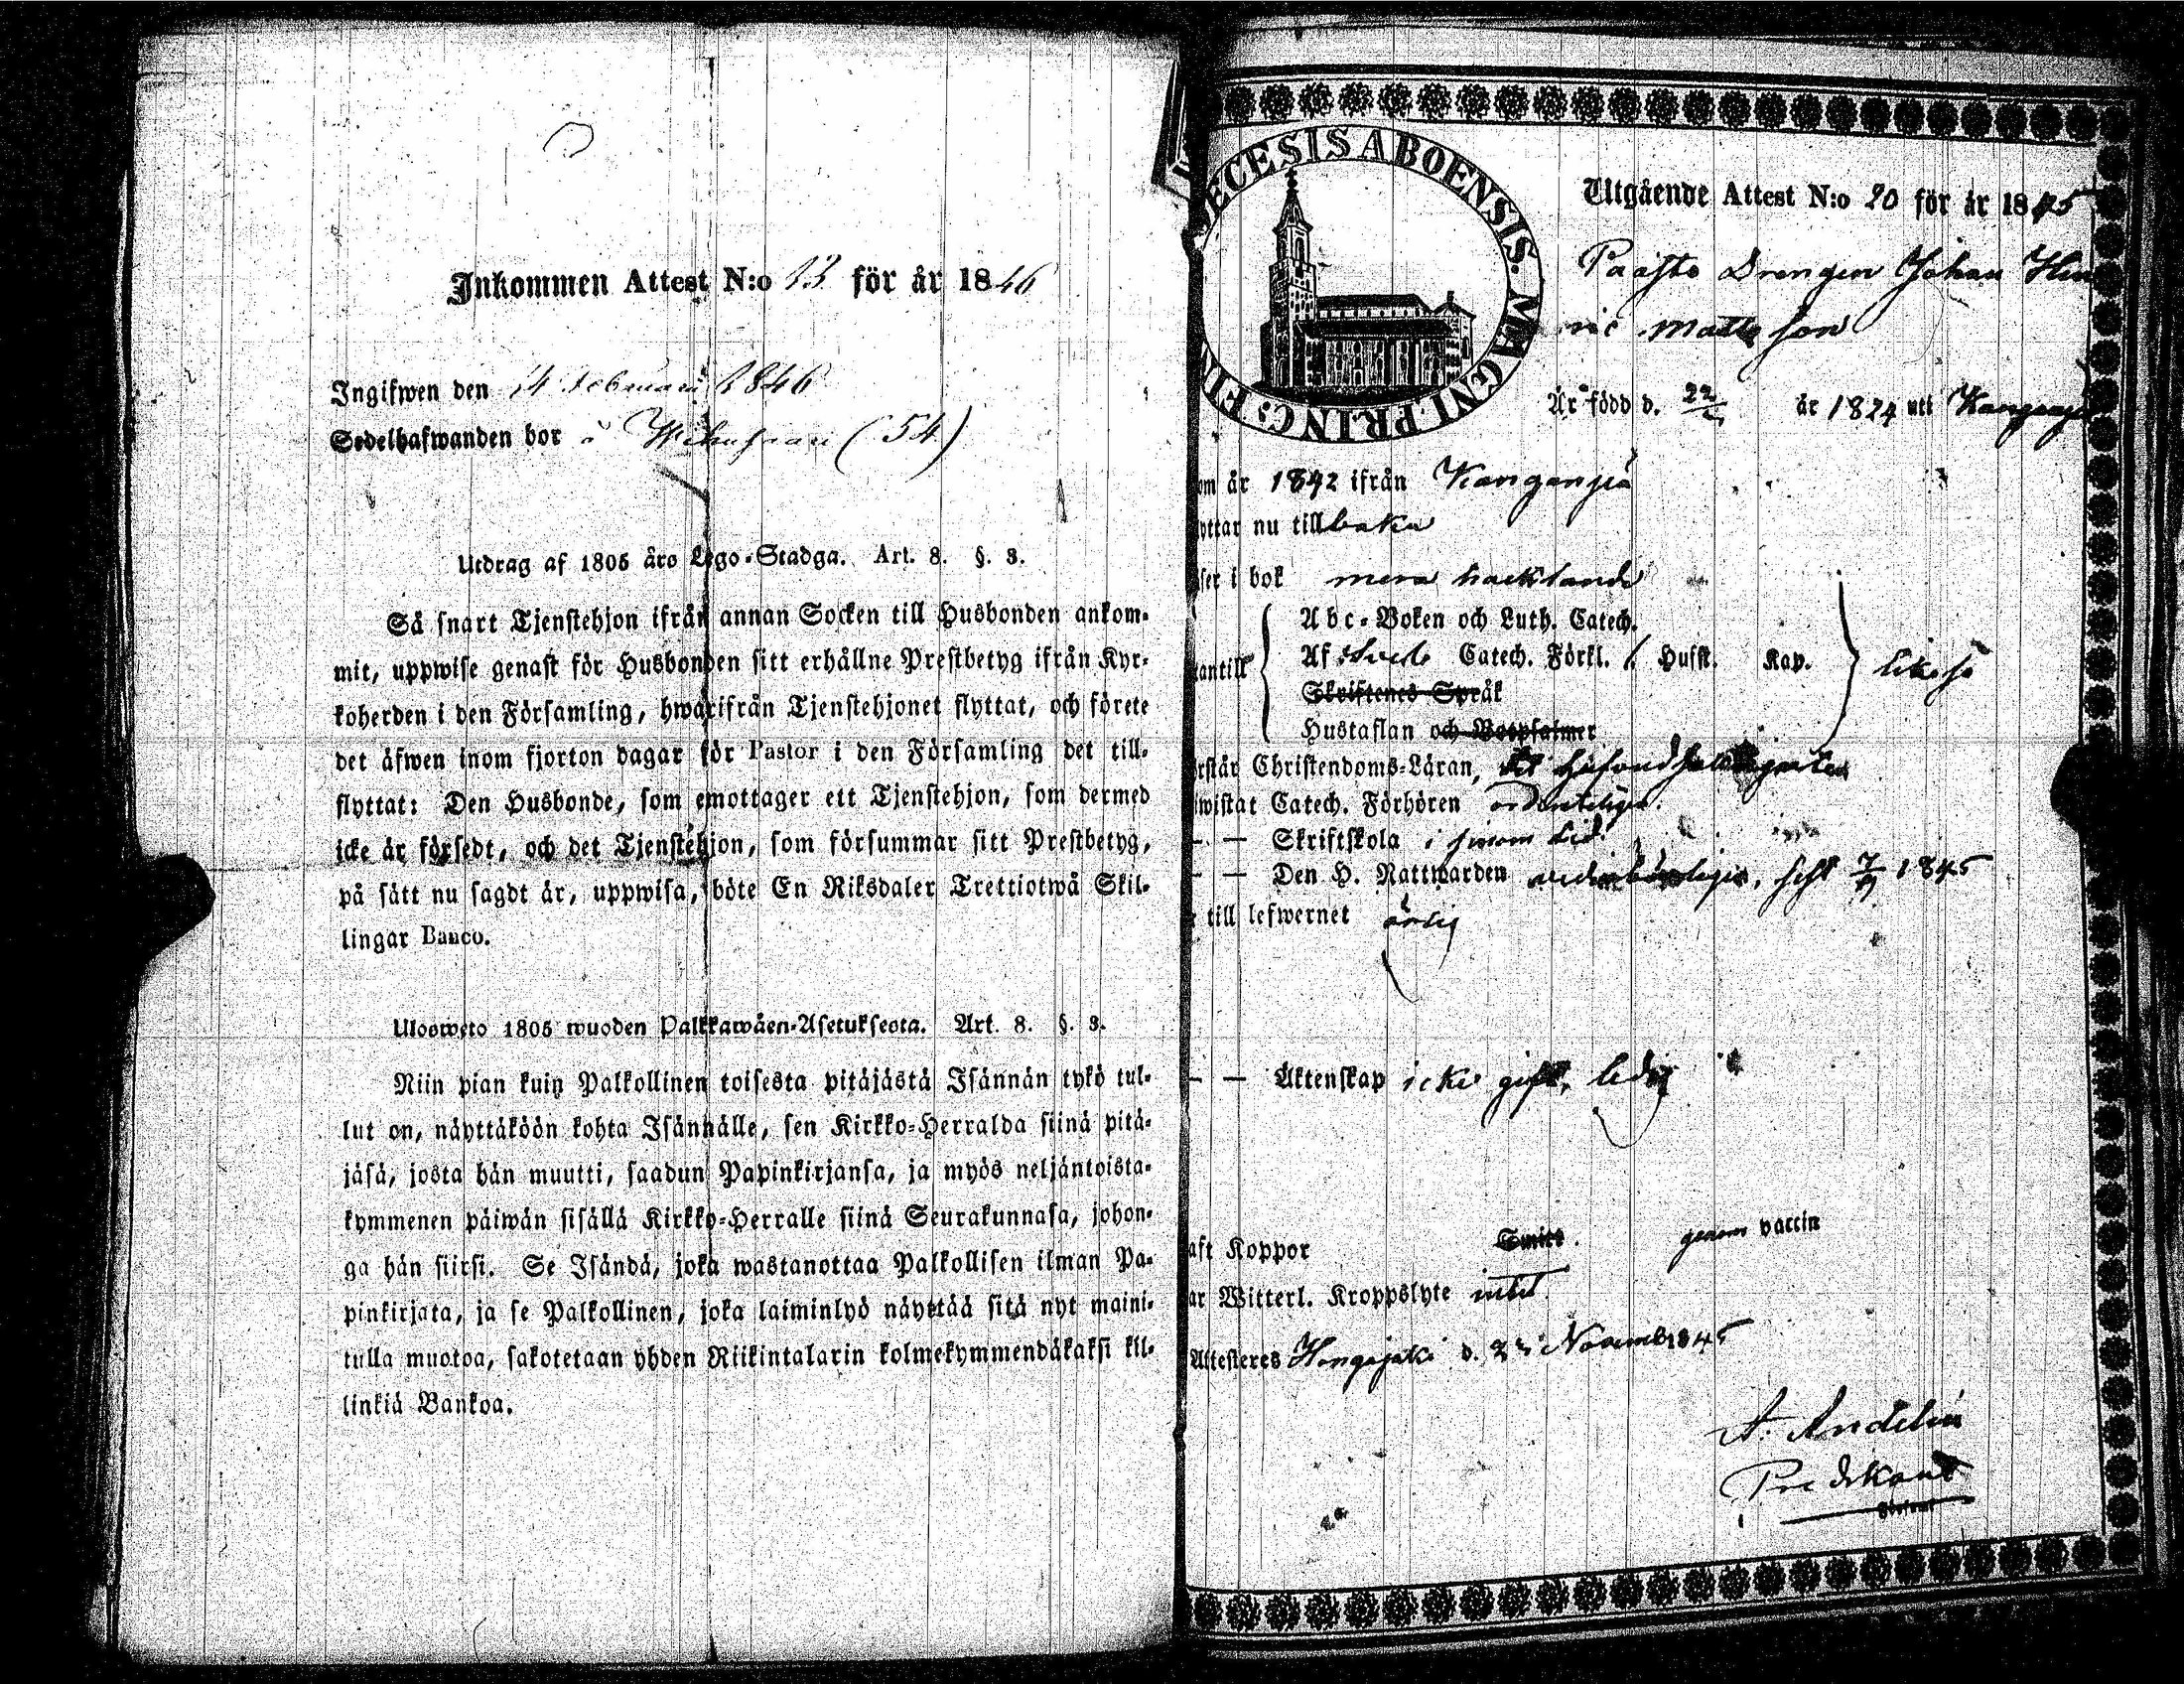 Inkommen Attest N:o 13 för år 1846
Ingifwen den 14 Februari 1846
Sedelhafwanden bor å (54)
Utdrag af 1805 års Lego-Stadga. Art. 8. §. 3.
Så snart Tjenstehjon ifrån annan Socken till Husbonden ankom-
mit, uppwise genast för Husbonden sitt erhållne Prestbetyg ifrån Kyr-
koherden i den Församling, hwarifrån Tjenstehjonet flyttat, och förete
det äfwen inom fjorton dagar för Pastor i den Församling det till-
flyttat: Den Husbonde, som emottager ett Tjenstehjon, som dermed
icke är försedt, och det Tjenstehjon, som försummar sitt Prestbetyg,
på sätt nu sagdt är, uppwisa, böte En Riksdaler Trettiotwå Skil-
lingar Banco.
Ulosweto 1805 wuoden Palkkawäen-Asetuksesta. Art. 8. §. 3.
Niin pian kuin Palkollinen toisesta pitäjästä Isännän tykö tul-
lut on, näyttäköön kohta Isännälle, sen Kirkko-Herralda siinä pitä-
jäsä, josta hän muutti, saadun Papinkirjansa, ja myös neljäntoista-
kymmenen päiwän sisällä Kirkko-Herralle siinä Seurakunnasa, johon-
ga hän siirsi. Se Isändä, joka wastanottaa Palkollisen ilman Pa-
pinkirjata, ja se Palkollinen, joka laiminlyö näyttää sitä nyt maini-
tulla muotoa, sakotetaan yhden Riikintalarin kolmekymmendäkaksi kil-
linkiä Bankoa.
DECESIS ABOENSIS. MAGNI. PRINC: FIN
Utgående Attest N:o 20 för år 1845
Paasto Drengen Johan Hin
ric Matts son
Är född d. 22/ år 1824 uti Kangasjä
om år 1842 ifrån
yttar nu tillbaka
ser i bok
Abc-Boken och Luth. Catech.
antill Af Catech. Förkl. Husst. Kap. likaså
Skriftenes Språk
Hustaflan och Botpsalmer
rstår Christendoms-Läran,
wistat Catech. Förhören ordenteligen.
— — Skriftskola i sinom tid
— — Den H. Nattwarden sist 7/9 1845
till lefwernet ärlig
— — Äktenskap icke gift, ledig
aft Koppor genom vaccin
ar Witterl. Kroppslyte intet.
Attesteres Hongojoki d. November 1845
A. Andelin
Predikant